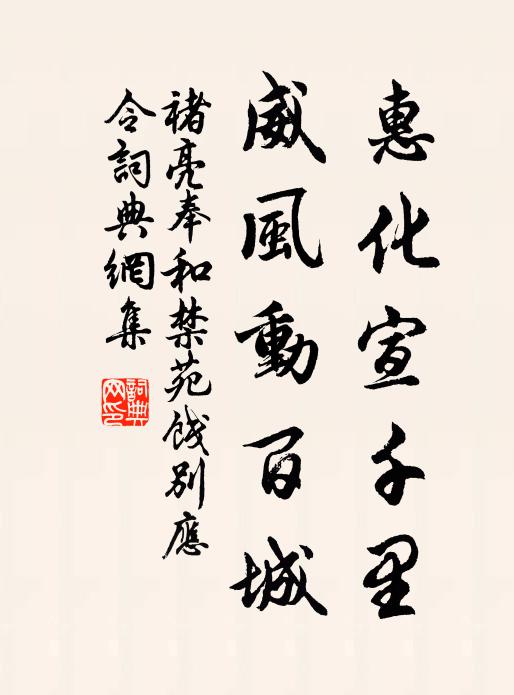 惠化宣千里
威風動百城
褚亮奉和禁苑餞別應
令詞典網集
詞典網印